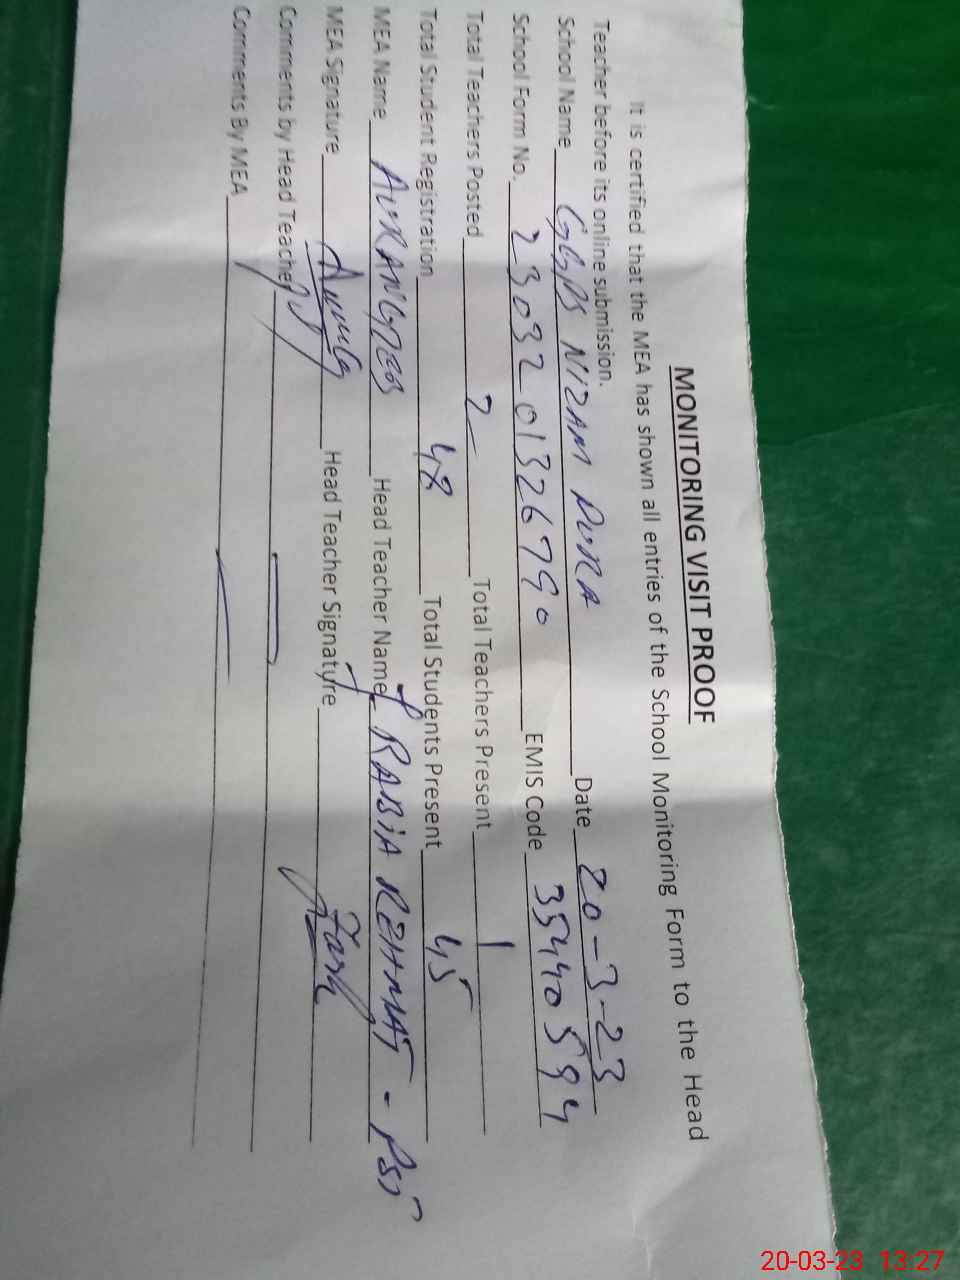 MONITORING VISIT PROOF
It is certified that the MEA has shown all entries of the School Monitoring Form to the Head
Teacher before its online submission.
School Name GGPS NIZAM PURA Date 20-3-23
School Form No. 2303201326790 EMIS Code 35440594
Total Teachers Posted 2 Total Teachers Present 1
Total Student Registration 48 Total Students Present 45
MEA Name AURANGZEB Head Teacher Name RABIA REHMAT - PST
MEA Signature Head Teacher Signature
Comments by Head Teacher
Comments By MEA
20-03-23 13:27